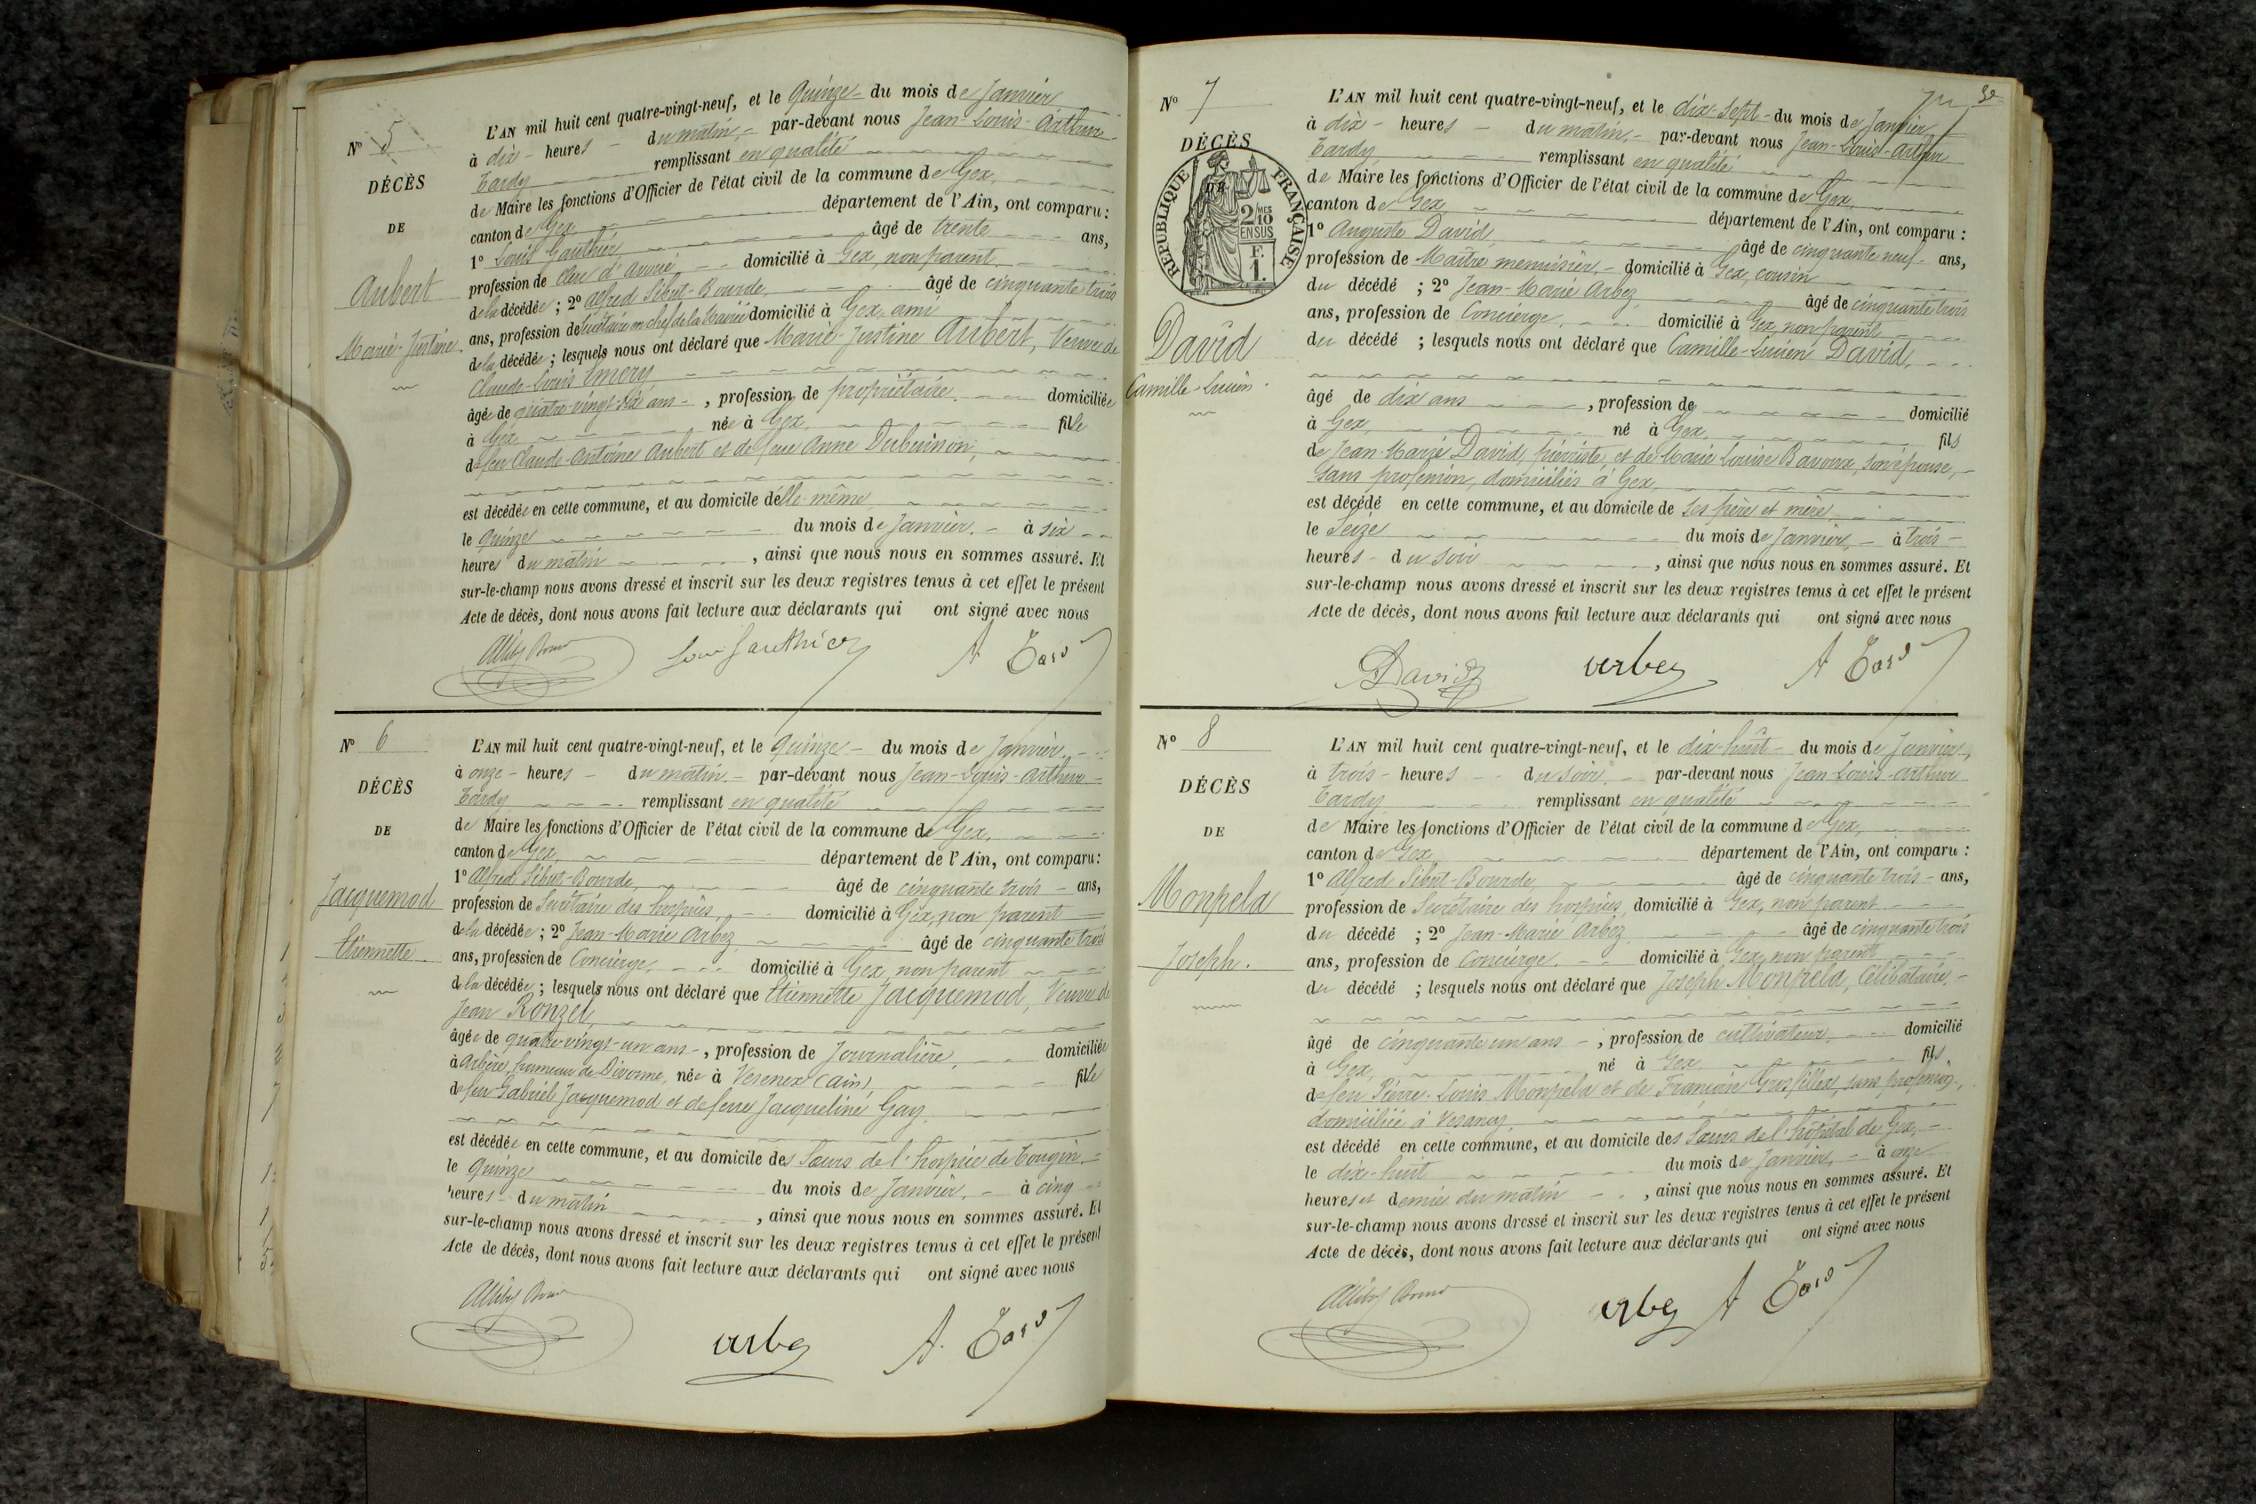 N° 5
DÉCÈS
DE
Aubert
Marie-Justine
L'AN mil huit cent quatre-vingt-neuf, et le Quinze du mois de Janvier
à dix heures du matin, par-devant nous Jean-Louis-Arthur
Tardy remplissant en qualité
de Maire les fonctions d'Officier de l'état civil de la commune de Gex,
canton de Gex département de l'Ain, ont comparu :
1° Louis Gauthier âgé de trente ans,
profession de domicilié à Gex, non parent
de la décédée ; 2° Alfred Sibut-Bourde, âgé de cinquante trois
ans, profession de Secrétaire en chef de la Mairie domicilié à Gex, ami
de la décédée ; lesquels nous ont déclaré que Marie-Justine Aubert, Veuve de
Claude-Louis Emery
âgée de quatre-vingt-dix ans, profession de propriétaire, domiciliée
à Gex née à Gex, fille
de feu Claude-Antoine Aubert et de feue Anne
est décédée en cette commune, et au domicile d'elle-même
le quinze du mois de Janvier, à six
heures du matin, ainsi que nous nous en sommes assuré. Et
sur-le-champ nous avons dressé et inscrit sur les deux registres tenus à cet effet le présent
Acte de décès, dont nous avons fait lecture aux déclarants qui ont signé avec nous
Louis Gauthier A Tardy
N° 6
DÉCÈS
DE
Jacquemod
Etiennette
L'AN mil huit cent quatre-vingt-neuf, et le Quinze du mois de Janvier,
à onze heures du matin par-devant nous Jean-Louis-Arthur
Tardy remplissant en qualité
de Maire les fonctions d'Officier de l'état civil de la commune de Gex,
canton de Gex, département de l'Ain, ont comparu :
1° Alfred Sibut-Bourde, âgé de cinquante trois ans,
profession de Secrétaire des hospices, domicilié à Gex, non parent
de la décédée ; 2° Jean-Marie Arbez âgé de cinquante trois
ans, profession de Concierge, domicilié à Gex, non parent
de la décédée ; lesquels nous ont déclaré que Etiennette Jacquemod, Veuve de
Jean Ronzel,
âgée de quatre-vingt-un ans, profession de Journalière, domiciliée
à Arbère, hameau de Divonne, née à Vesenex (Ain), fille
de feu Gabriel Jacquemod et de feue Jacqueline Gay
est décédée en cette commune, et au domicile des Soeurs de l'hospice de Tougin,
le Quinze du mois de Janvier, à cinq
heures du matin, ainsi que nous nous en sommes assuré. Et
sur-le-champ nous avons dressé et inscrit sur les deux registres tenus à cet effet le présent
Acte de décès, dont nous avons fait lecture aux déclarants qui ont signé avec nous
arbez A. Tardy
N° 7
DÉCÈS
DE
RÉPUBLIQUE FRANÇAISE
2/10 MES
EN SUS
F.
1.
David
Camille-Lucien
L'AN mil huit cent quatre-vingt-neuf, et le dix-Sept du mois de Janvier,
à dix heures du matin, par-devant nous Jean-Louis-Arthur
Tardy remplissant en qualité
de Maire les fonctions d'Officier de l'état civil de la commune de Gex,
canton de Gex département de l'Ain, ont comparu :
1° Auguste David, âgé de cinquante neuf ans,
profession de Maître menuisier, domicilié à Gex, cousin
du décédé ; 2° Jean-Marie Arbez, âgé de cinquante trois
ans, profession de Concierge, domicilié à Gex, non parent
du décédé ; lesquels nous ont déclaré que Camille-Lucien David,
âgé de dix ans, profession de domicilié
à Gex, né à Gex, fils
de Jean-Marie David, et de Marie Louise Bavoux, son épouse,
sans profession, domiciliés à Gex,
est décédé en cette commune, et au domicile de ses père et mère,
le Seize du mois de Janvier, à trois
heures du soir, ainsi que nous nous en sommes assuré. Et
sur-le-champ nous avons dressé et inscrit sur les deux registres tenus à cet effet le présent
Acte de décès, dont nous avons fait lecture aux déclarants qui ont signé avec nous
David arbez A Tardy
N° 8
DÉCÈS
DE
Monpela
Joseph.
L'AN mil huit cent quatre-vingt-neuf, et le dix-huit du mois de Janvier,
à trois heures du soir par-devant nous Jean-Louis-Arthur
Tardy remplissant en qualité
de Maire les fonctions d'Officier de l'état civil de la commune de Gex,
canton de Gex département de l'Ain, ont comparu :
1° Alfred Sibut-Bourde, âgé de cinquante trois ans,
profession de Secrétaire des hospices, domicilié à Gex, non parent
du décédé ; 2° Jean-Marie Arbez âgé de cinquante trois
ans, profession de Concierge. domicilié à Gex, non parent
du décédé ; lesquels nous ont déclaré que Joseph Monpela, Célibataire,
âgé de cinquante un ans, profession de cultivateur, domicilié
à Gex, né à Gex, fils
de feu Pierre-Louis Monpela et de Françoise Grosfillex, sans profession,
domiciliée à Vesancy,
est décédé en cette commune, et au domicile des Soeurs de l'hôpital de Gex,
le dix-huit du mois de Janvier, à onze
heures et demie du matin, ainsi que nous nous en sommes assuré. Et
sur-le-champ nous avons dressé et inscrit sur les deux registres tenus à cet effet le présent
Acte de décès, dont nous avons fait lecture aux déclarants qui ont signé avec nous
arbez A Tardy